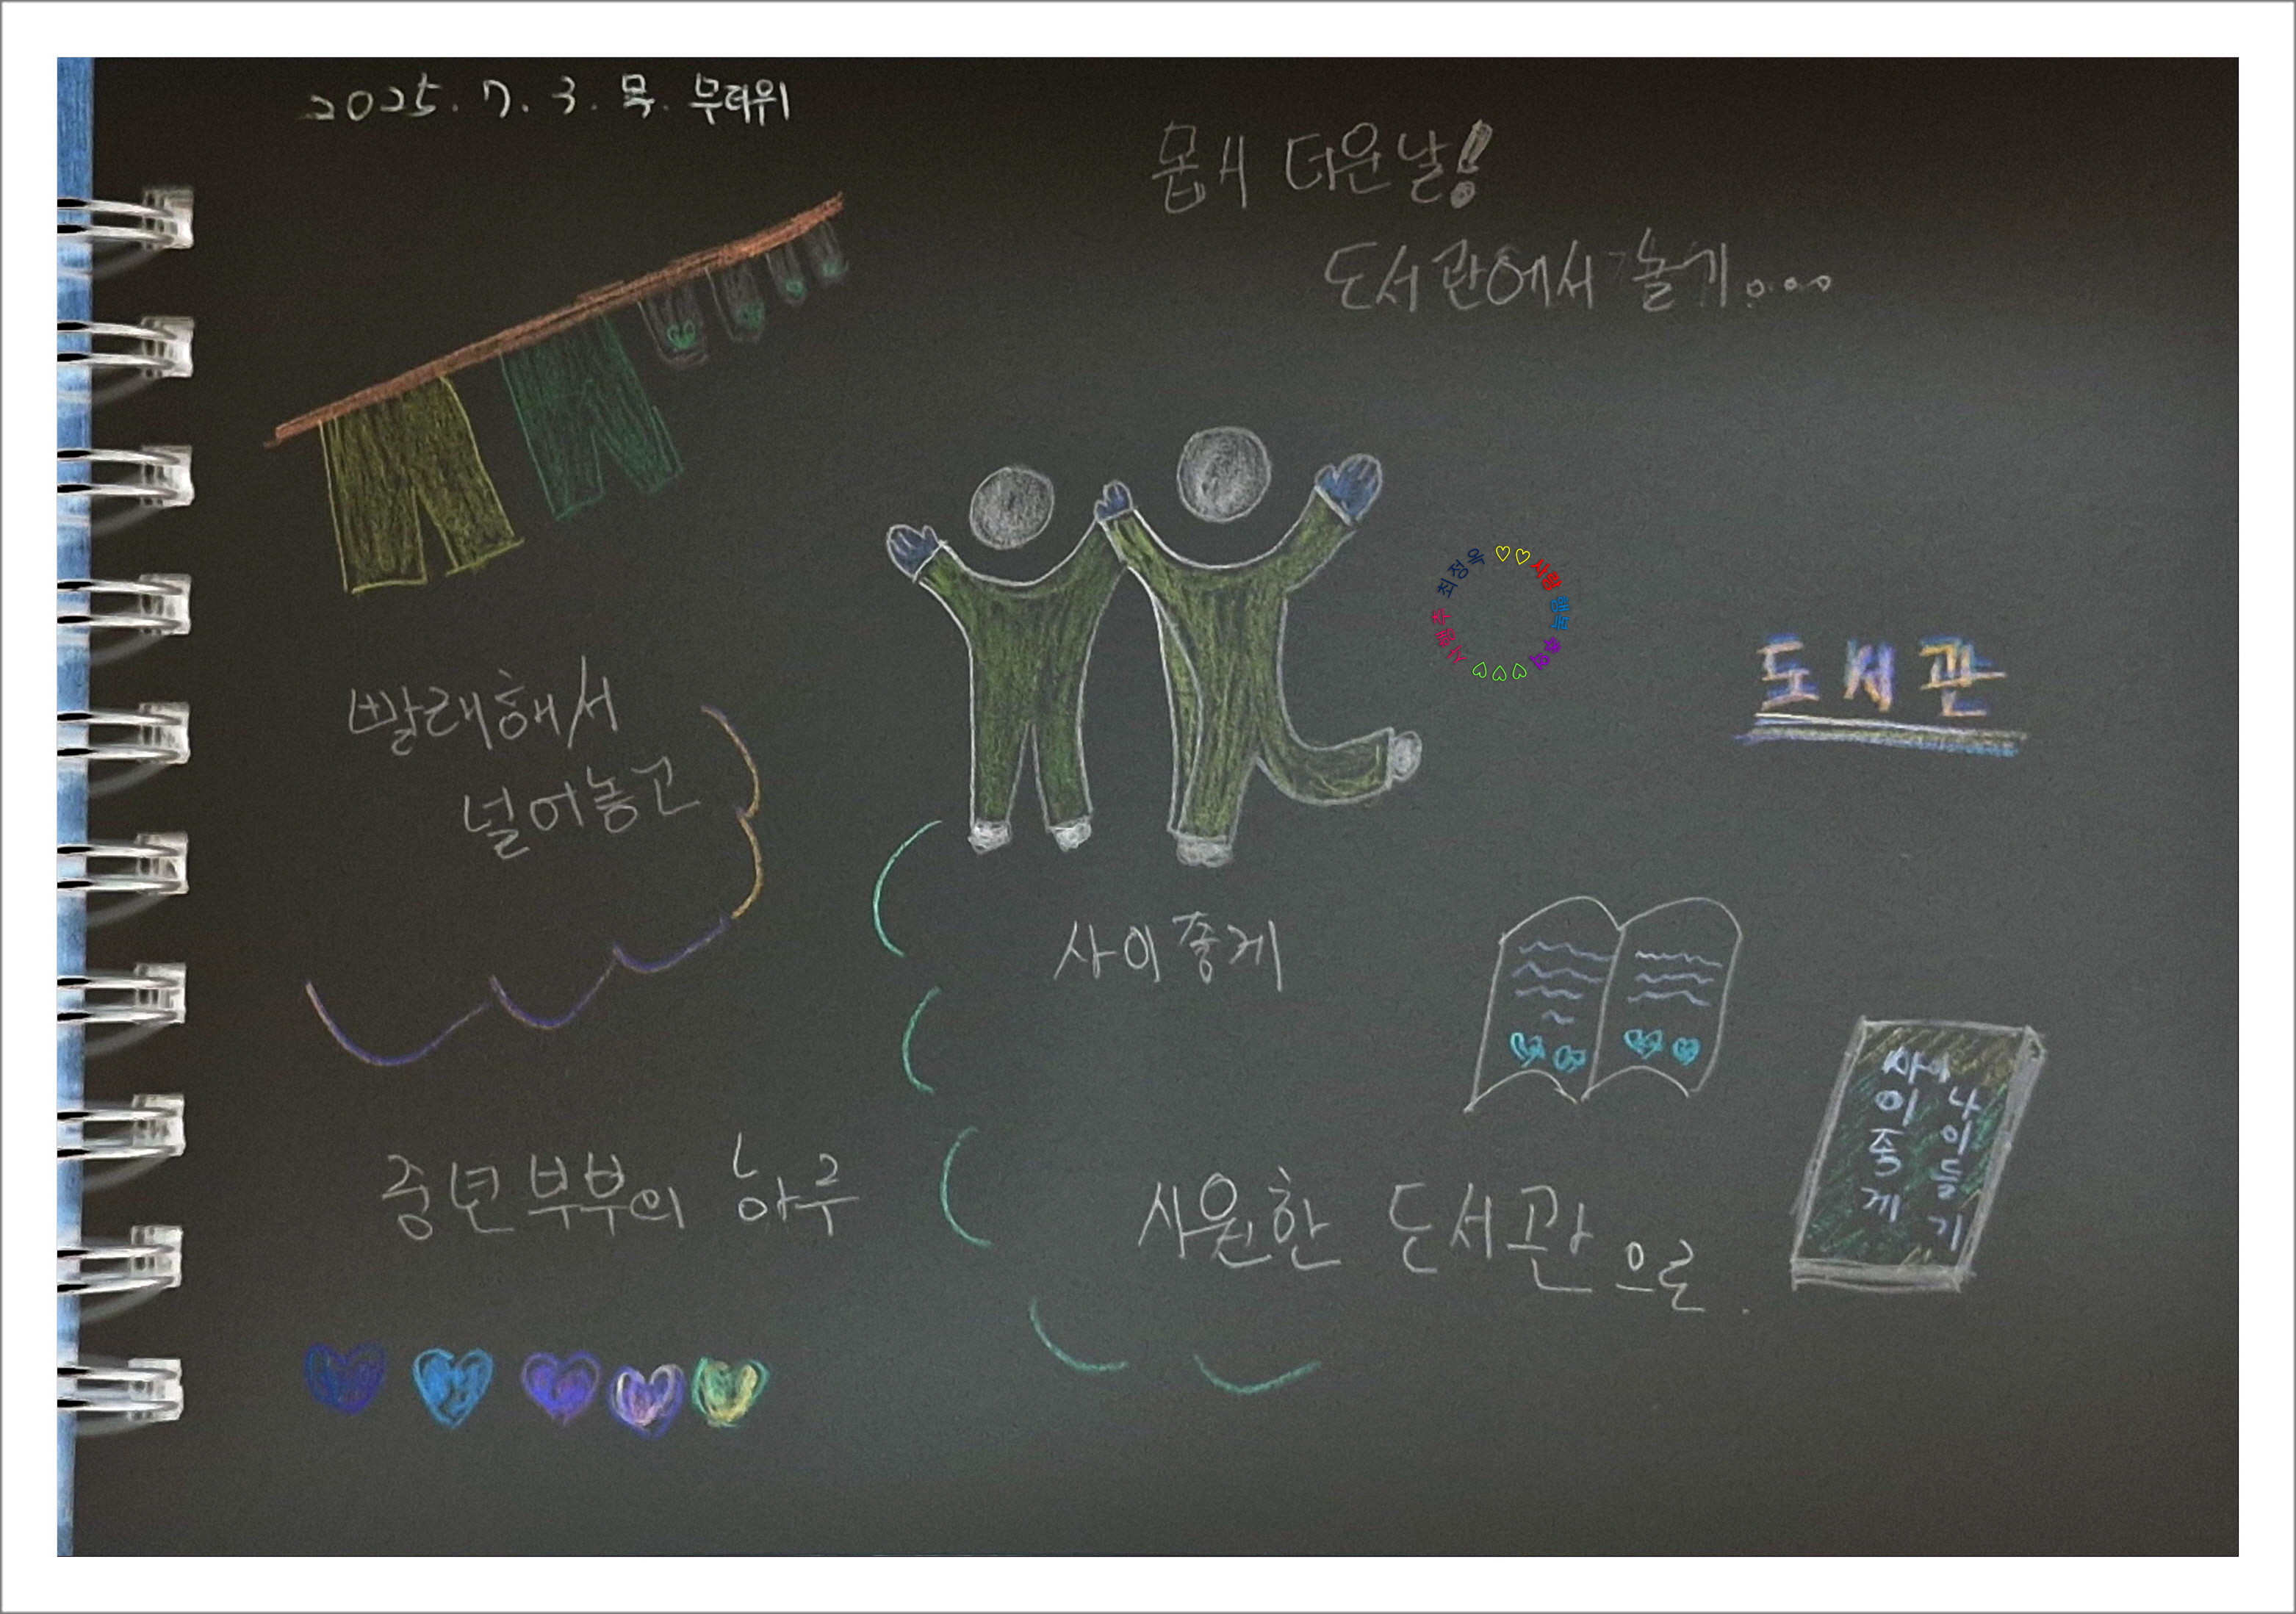 2025. 7. 3. 목. 무더위
몹시 더운날!
도서관에서 놀기....
최정옥 ♡♡ 사랑 행복 우리
도서관
빨래해서
널어놓고
사이좋게
사이좋게
나이들기
중년부부의 하루
시원한 도서관으로.